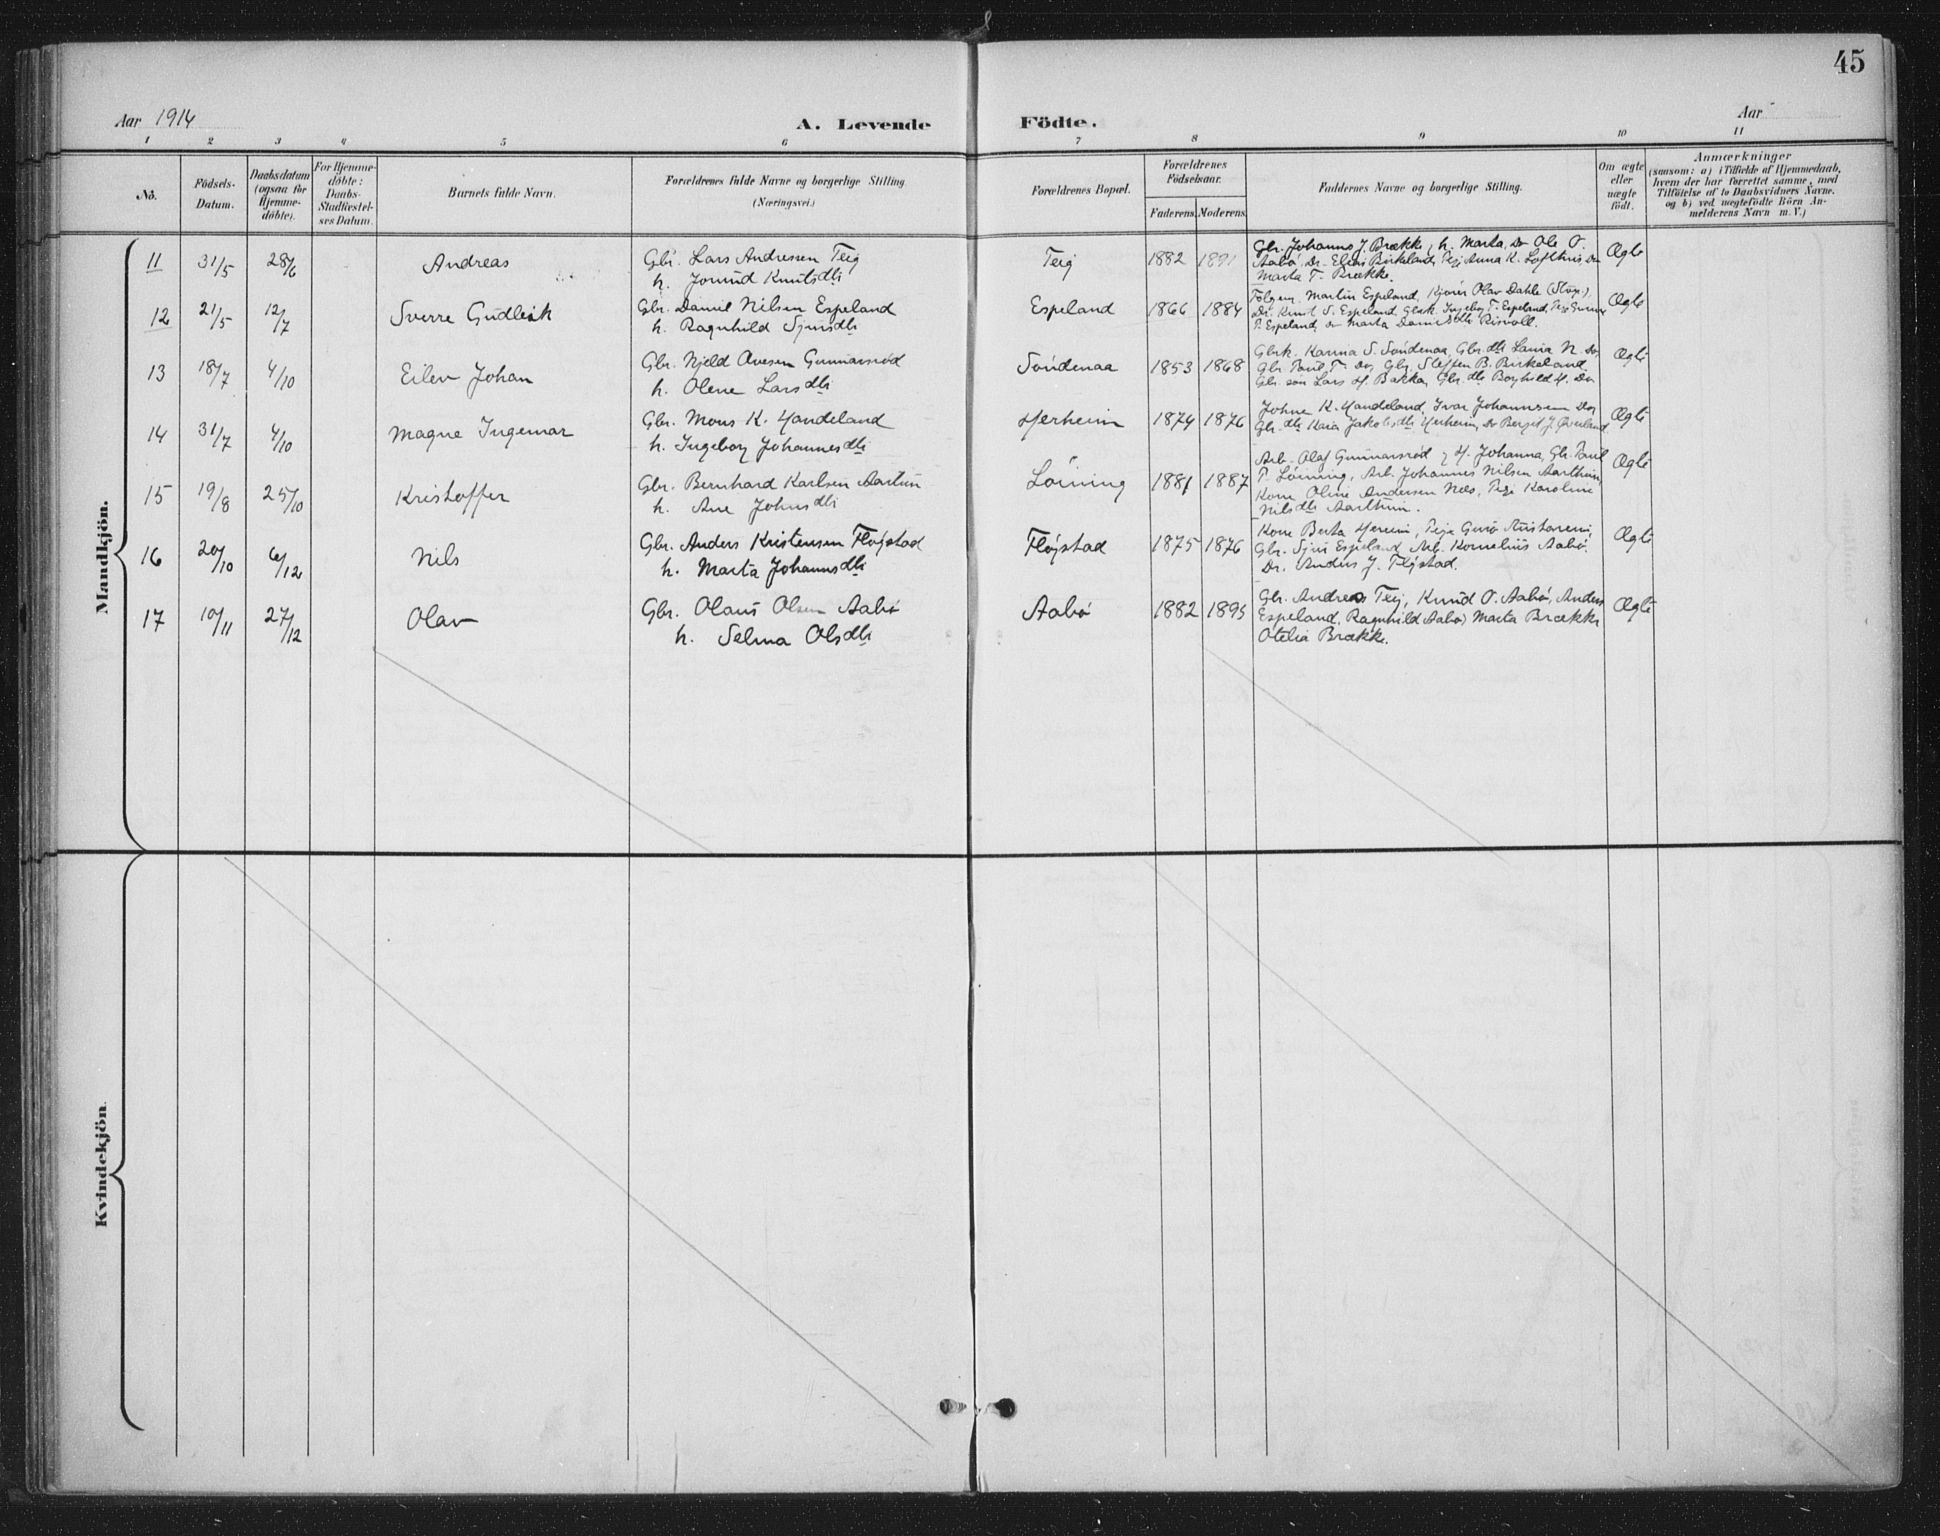 45
Aar 1914
A. Levende Födte.
Aar
1 2 3 4 5 6 7 8 9 10 11
No.
Födsels-Datum.
Daabsdatum (ogsaa for Hjemme-döbte).
For Hjemme-döbte: Daabs-Stadfæstel-ses Datum.
Barnets fulde Navn.
Forældrenes fulde Navne og borgerlige Stilling.
(Næringsvei.)
Forældrenes Bopæl.
Forældrenes Födselsaar.
Faderens. Moderens.
Faddernes Navne og borgerlige Stilling.
Om ægte eller uægte födt.
Anmærkninger
(saasom: a) i Tilfælde af Hjemmedaab,
hvem der har forrettet samme, med
Tilföielse af to Daabsvidners Navne.
og b) ved uægtefödte Börn An-
melderens Navn m. V.)
Mandkjön.
11 31/5 28/6 Andreas
Gbr. Lars Andresen Teig
h. Jorund Knutsdtr
Teig 1882 1891
Gbr. Johannes J. Brække, h. Marta, Do Ole O.
Aabø, Dr. Elias Birkeland, Pige Anna K. Lofthus, Do
Marta T. Brække.
Ægte
12 21/5 12/7 Sverre Gudleik
Gbr. Daniel Nilsen Espeland
h. Ragnhild Sjursdtr
Espeland 1866 1884
Martin Espeland, Olav Dahle
Dr. Knut S. Espeland, Ingeborg T. Espeland,
T. Espeland, Marta Danielsdtr Risvoll.
Ægte
13 18/7 4/10 Eilev Johan
Gbr. Njeld Avesen Gunnarsrød
h. Olene Larsdtr
Söndenaa 1853 1868
Gbrk. Karina S. Söndenaa, Gbr.dtr Laura N. Do,
Gbr. Poul T. Do, Gbr. Steffen B. Birkeland
Gbr. søn Lars H. Bakka, Gbr. dtr Borghild H. Do
Ægte
14 31/7 4/10 Magne Ingemar
Gbr. Mons K. Handeland
h. Ingeborg Johannesdtr
Herheim 1874 1876
Johne K. Handeland, Ivar Johannesen Do,
Gbr.dtr Kaia Jakobsdtr Herheim, Do Bergit J. Øverland
Ægte
15 19/8 25/10 Kristoffer
Gbr. Bernhard Karlsen Aartun
h. Ane Johnsdtr
Löining 1881 1887
Arb. Olaf Gunnarsrød, H. Johanna, Gbr. Poul
P. Löining, Arb. Johannes Nilsen Aarthun,
Kone Oline Andersen Næs, Pige Karoline
Nilsdtr Aarthun.
Ægte
16 20/10 6/12 Nils
Gbr. Anders Kristensen Fløjstad
h. Marta Johannsdtr
Fløjstad 1875 1876
Kone Berta Hereim, Pige Guro
Gbr. Sjur Espeland, Arb. Kornelius Aabø.
Dr. Anders J. Fløjstad.
Ægte
17 10/11 27/12 Olav
Gbr. Olaus Olsen Aabø
h. Selma Olsdtr
Aabø 1882 1895
Gbr. Andreas Teig, Knud O. Aabø, Anders
Espeland, Ragnhild Aabø, Marta Brække
Otelia Brække.
Ægte
Kvindekjön.